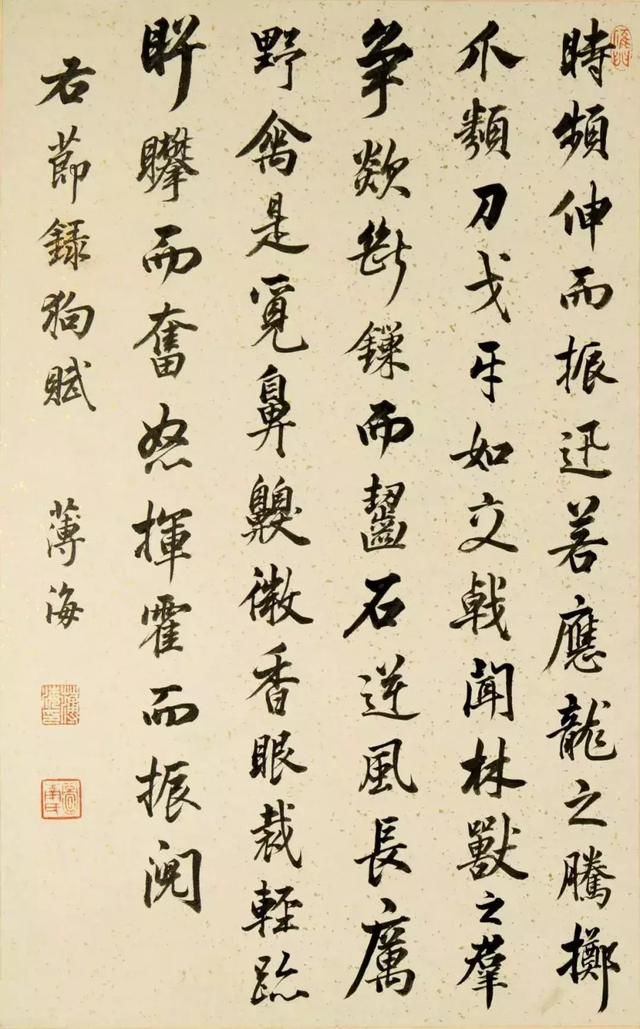 時頻伸而振迅若應龍之騰擲
爪類刀戈牙如交戟聞林獸之羣
争欻斷鏁而齧石逆風長厲
野禽是覓鼻齅微香眼裁輕跡
而奮怒揮霍而振
右節録狗賦
薄海